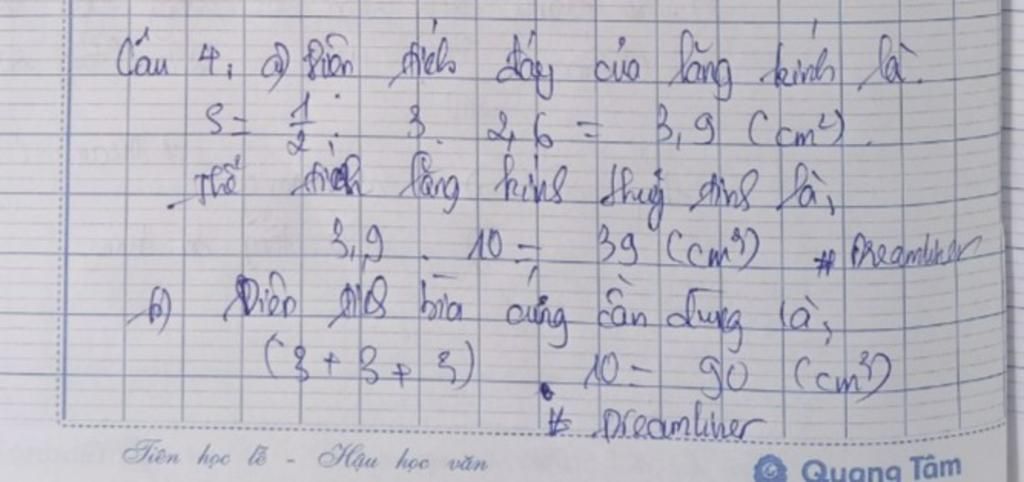 Câu 4, a) Diện tích đáy của lăng kính là.
S = 1/2 . 3 . 2,6 = 3,9 (cm²).
Thể tích lăng kính thuỷ tinh là,
3,9 . 10 = 39 (cm³) # Dreamliner
b) Diện tích bìa cứng cần dùng là,
(3 + 3 + 3) . 10 = 90 (cm²)
# Dreamliner
Tiên học lễ - Hậu học văn
Quang Tâm